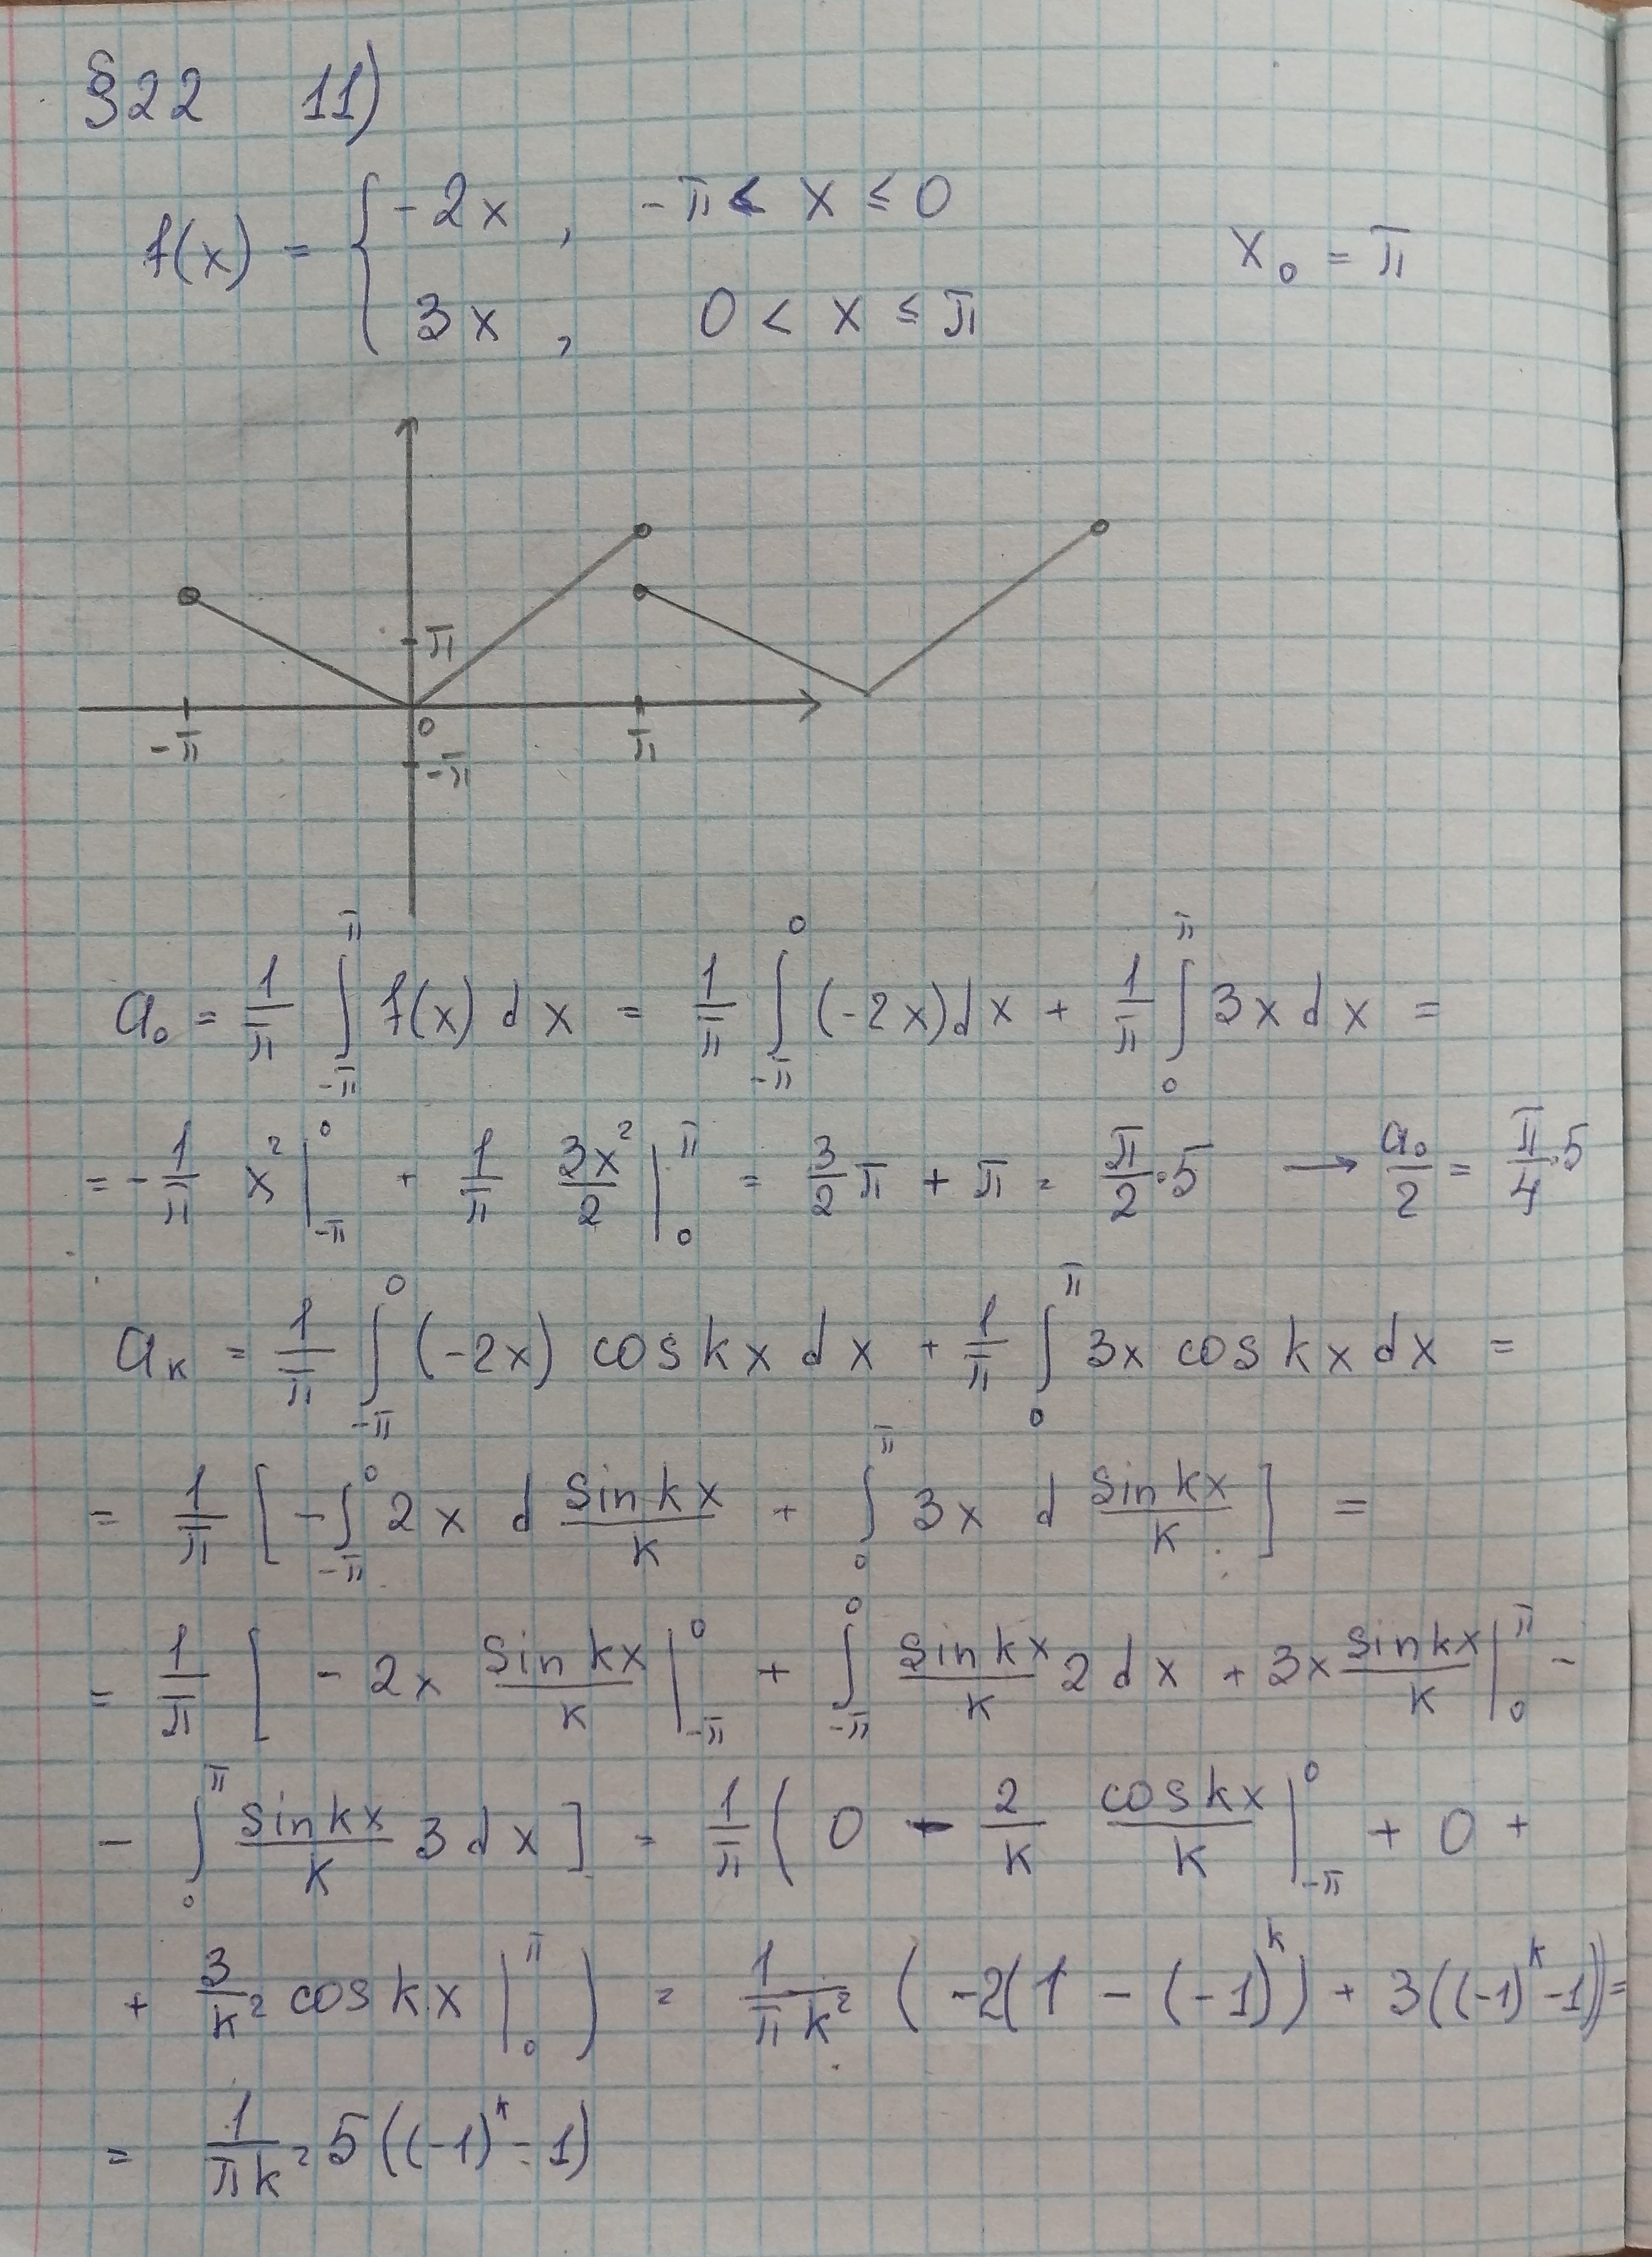 §22 11)
f(x) = { -2x , -π < x ≤ 0
3x , 0 < x ≤ π
x₀ = π
π
-π 0 π
-π
a₀ = 1/π ∫_{-π}^{π} f(x) dx = 1/π ∫_{-π}^{0} (-2x)dx + 1/π ∫_{0}^{π} 3x dx =
= -1/π x² |_{-π}^{0} + 1/π 3x²/2 |_{0}^{π} = 3/2 π + π = π/2·5 → a₀/2 = π/4·5
aₖ = 1/π ∫_{-π}^{0} (-2x) cos kx dx + 1/π ∫_{0}^{π} 3x cos kx dx =
= 1/π [ -∫_{-π}^{0} 2x d sin kx/k + ∫_{0}^{π} 3x d sin kx/k ] =
= 1/π [ - 2x sin kx/k |_{-π}^{0} + ∫_{-π}^{0} sin kx/k 2 dx + 3x sin kx/k |_{0}^{π} -
- ∫_{0}^{π} sin kx/k 3 dx ] = 1/π ( 0 - 2/k cos kx/k |_{-π}^{0} + 0 +
+ 3/k² cos kx |_{0}^{π} ) = 1/πk² ( -2(1 - (-1)^k) + 3((-1)^k -1)) =
= 1/πk² 5((-1)^k - 1)